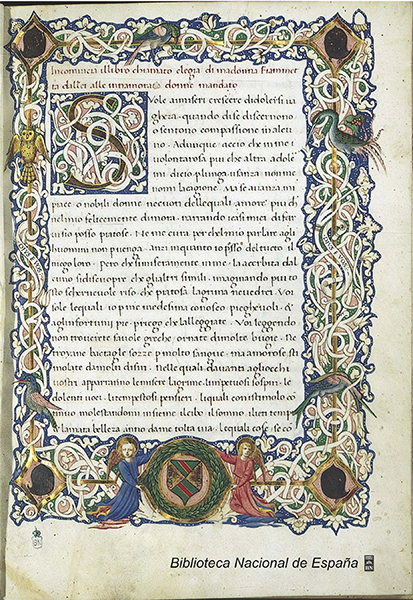 Incomincia illibro chiamato elegia di madonna Fiammet
ta dallei alle innamorate donne mandato
Suole amiseri crescere didolersi ua
ghezza quando discernono
o sentono compassione in alcu
no. Adunque accio che inme
uolontarosa piu che altra adole
mi di cio plunga usanza non me
nomi la cagione. Ma se auanza. mi
piace o nobili donne necuori delle quali amore piu che
nel mio felicemente dimora. narrando i casi miei. di far
ui so posso pietose. Ne me cura per chel mio parlare agli
huomini non puenga. anzi inquanto io posso del tucto. il
niego loro. Pero che si miseramente inme. la acerbita dal
cuno si discuopre che gli altri simili. imaginando piu to
sto scherneuole riso. che pietosa lagrima ne uedrei. Voi
sole le quali io p me medesima conosco pieghevoli. &
agli infortunii pie. priego che la leggiate. Voi leggendo
non trouerete fauole greche ornate di molte bugie. Ne
troyane battaglie sozze p molto sangue. ma amorose sti
molate da molti disiri. nelle quali dauanti agli occhi
uostri appariranno le misere lagrime. limpetuosi sospiri. le
dolenti uoci. i tempestosi pensieri. i quali con stimolo co
tinuo molestandomi insieme il cibo il sonno. i lieti tempi
& lamata bellezza anno da me tolta uia. le quali cose se co
Biblioteca Nacional de España